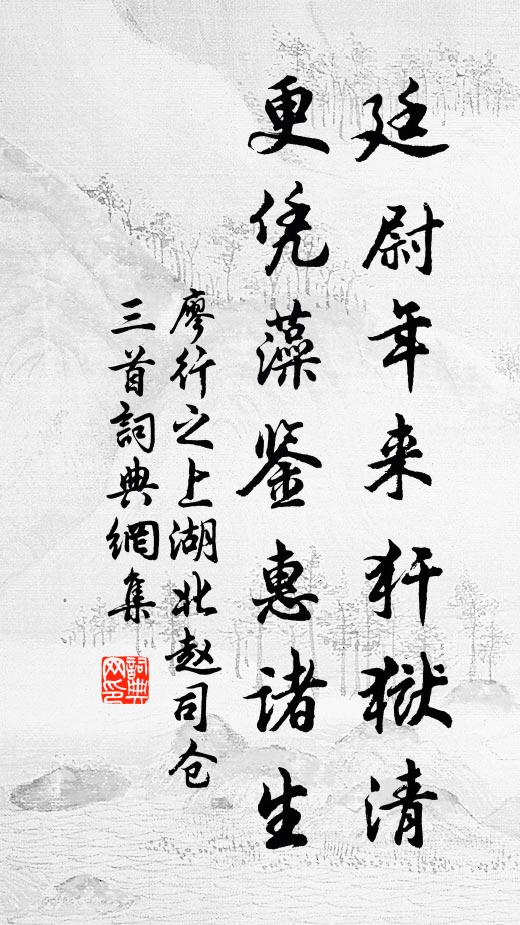 廷尉年来犴獄清
更凭藻鉴惠诸生
廖行之上湖北赵司仓
三首詞典網集
詞典網印